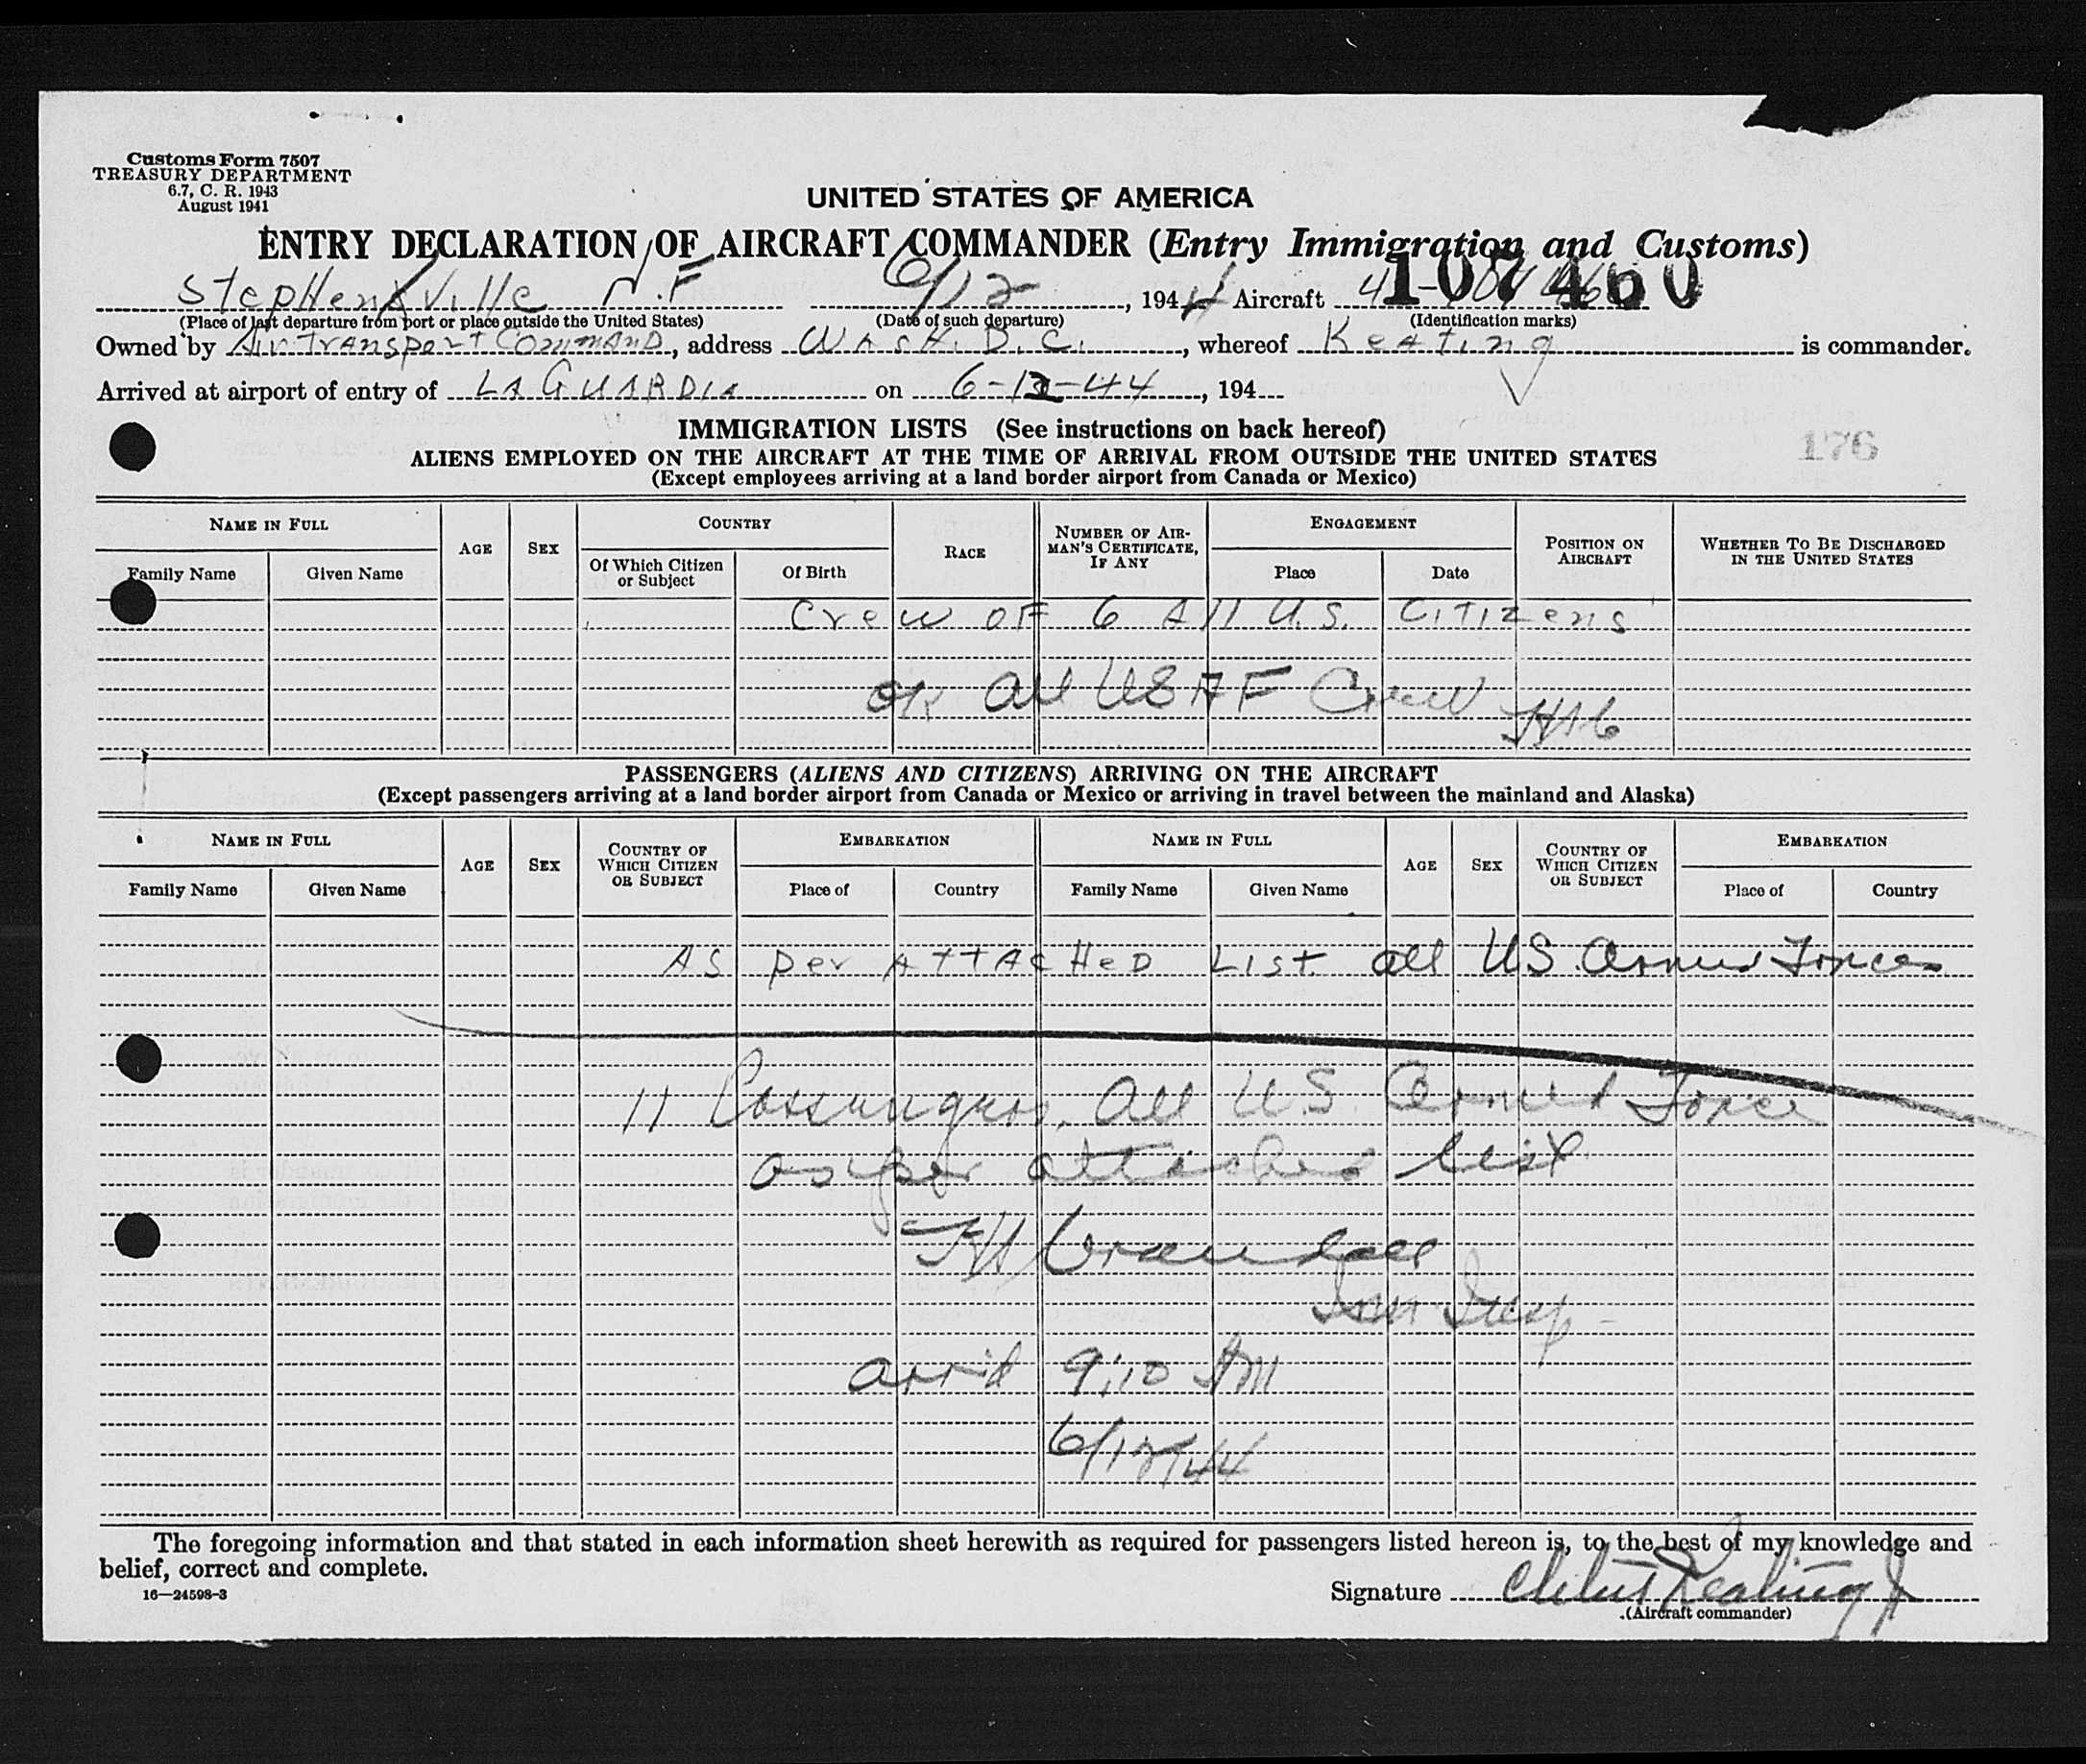 Customs Form 7507
TREASURY DEPARTMENT
6.7, C. R. 1943
August 1941
UNITED STATES OF AMERICA
ENTRY DECLARATION OF AIRCRAFT COMMANDER (Entry Immigration and Customs)
107460
StepHensville N.F 6/12, 1944 Aircraft
(Place of last departure from port or place outside the United States) (Date of such departure) (Identification marks)
Owned by Air Transport Command, address Wash. D.C., whereof Keating is commander.
Arrived at airport of entry of LA GUARDIA on 6-12-44, 194
176
IMMIGRATION LISTS (See instructions on back hereof)
ALIENS EMPLOYED ON THE AIRCRAFT AT THE TIME OF ARRIVAL FROM OUTSIDE THE UNITED STATES
(Except employees arriving at a land border airport from Canada or Mexico)
NAME IN FULL AGE SEX COUNTRY RACE NUMBER OF AIRMAN'S CERTIFICATE, IF ANY ENGAGEMENT POSITION ON AIRCRAFT WHETHER TO BE DISCHARGED IN THE UNITED STATES
Family Name Given Name Of Which Citizen or Subject Of Birth Place Date
Crew OF 6 All U.S. Citizens
OK All USAF Crew
PASSENGERS (ALIENS AND CITIZENS) ARRIVING ON THE AIRCRAFT
(Except passengers arriving at a land border airport from Canada or Mexico or arriving in travel between the mainland and Alaska)
NAME IN FULL AGE SEX COUNTRY OF WHICH CITIZEN OR SUBJECT EMBARKATION NAME IN FULL AGE SEX COUNTRY OF WHICH CITIZEN OR SUBJECT EMBARKATION
Family Name Given Name Place of Country Family Name Given Name Place of Country
AS per ATTACHED List all US Armed Forces
11 Passengers, All U.S. Armed Force
as per attached list
Imm Insp
arrid 9:10 AM
6/12/44
The foregoing information and that stated in each information sheet herewith as required for passengers listed hereon is, to the best of my knowledge and
belief, correct and complete.
16—24598-3
Signature Cletus Keating Jr
(Aircraft commander)